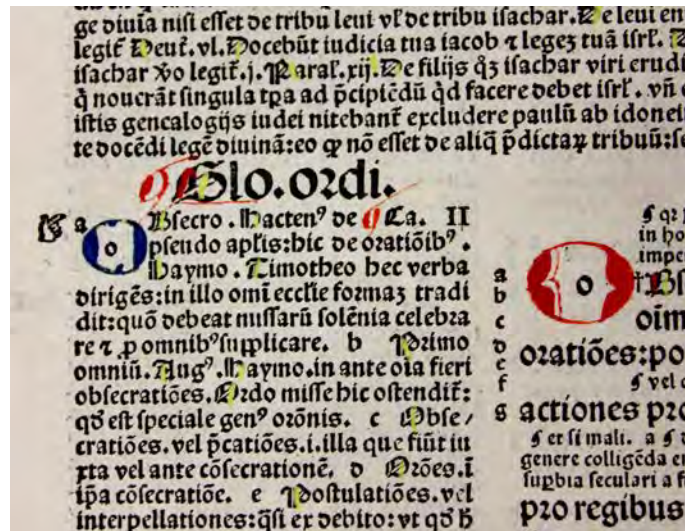 ge diuia nisi esset de tribu leui vƚ de tribu isachar. De leui en
legiť Deuť. vl. Docebūt iudicia tua iacob ⁊ legeʒ tuā isrƚ.
isachar ꝟo legiť. j. Paraƚ. xij. De filijs qͥʒ isachar viri erudi
q̄ nouerāt singula tp̄a ad p̄cipiēdū qd̄ facere debet isrƚ. vn̄
istis genealogijs iudei nitebanť excludere paulū ab idonei
te docēdi legē diuinā: eo ꝙ nō esset de aliq̄ p̄dictaꝝ tribuū: s
Glo. ordi.
a OBsecro. Hactenꝰ de Ca. II
pseudo aplīs: hic de oratiōibꝰ.
Haymo. Timotheo hec verba
dirigēs: in illo omī eccƚie formaʒ tradi
dit: quō debeat missarū solēnia celebra
re ⁊ ꝓ omnibꝰ supplicare. b Primo
omniū. Augꝰ. Haymo. in ante oīa fieri
obsecratiōes. Ordo misse hic ostendiť:
qd̄ est speciale genꝰ orōnis. c Obse/
cratiōes. vel p̄catiōes. i. illa que fiūt iu
xta vel ante cōsecrationē. d Orōes. ī
ip̄a cōsecratiōe. e Postulatiōes. vel
interpellationes: q̄si ex debito: vt qd̄ h̄
ꝰ qꝛ
in ho
impe
a
b OBs
c oīm
d
e oratiōes: po
f ꝰ vel
g actiones pro
ꝰ et si mali. a
genere colligēda e
suꝑbia seculari a
pro regibus